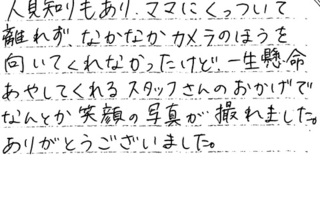 人見知りもあり、ママにくっついて
離れず、なかなかカメラのほうを
向いてくれなかったけど、一生懸命
あやしてくれるスタッフさんのおかげで
なんとか笑顔の写真が撮れました。
ありがとうございました。